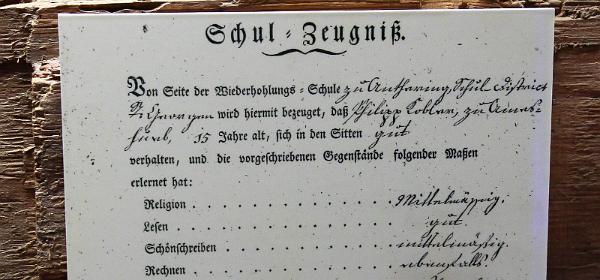 Schul-Zeugniß.
Von Seite der Wiederhohlungs-Schule zu Anthering Schul District
St. Georgen wird hiermit bezeuget, daß Philipp Kobler, zu
15 Jahre alt, sich in den Sitten gut
verhalten, und die vorgeschriebenen Gegenstände folgender Maßen
erlernet hat:
Religion . . . . . . . . . . . . . . Mittelmässig.
Lesen . . . . . . . . . . . . . . gut
Schönschreiben . . . . . . . . . . . . mittelmäßig.
Rechnen . . . . . . . . . . . . . . ebenfalls.